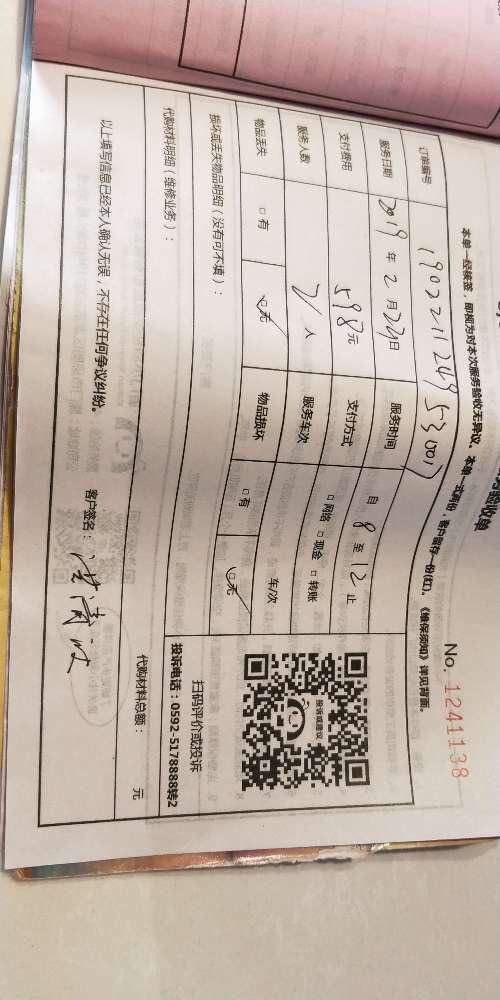 验收单
No. 1241138
本单一经核签，即视为对本次服务验收无异议。本单一式两份，客户留存一份(红)。《维保须知》详见背面。
订单编号 190221124953001
服务日期 2019 年 2 月 22 日 服务时间 自 8 至 12 止
支付费用 598 元 支付方式 □ 网络 □ 现金 □ 转账
服务人数 2 人 服务车次 车/次
物品丢失 □ 有 ☑ 无 物品损坏 □ 有 ☑ 无
损坏或丢失物品明细（没有可不填）：
投诉或建议
扫码评价或投诉
投诉电话：0592-5178888转2
代购材料明细（维修业务）： 代购材料总额： 元
以上填写信息已经本人确认无误，不存在任何争议纠纷。 客户签名：